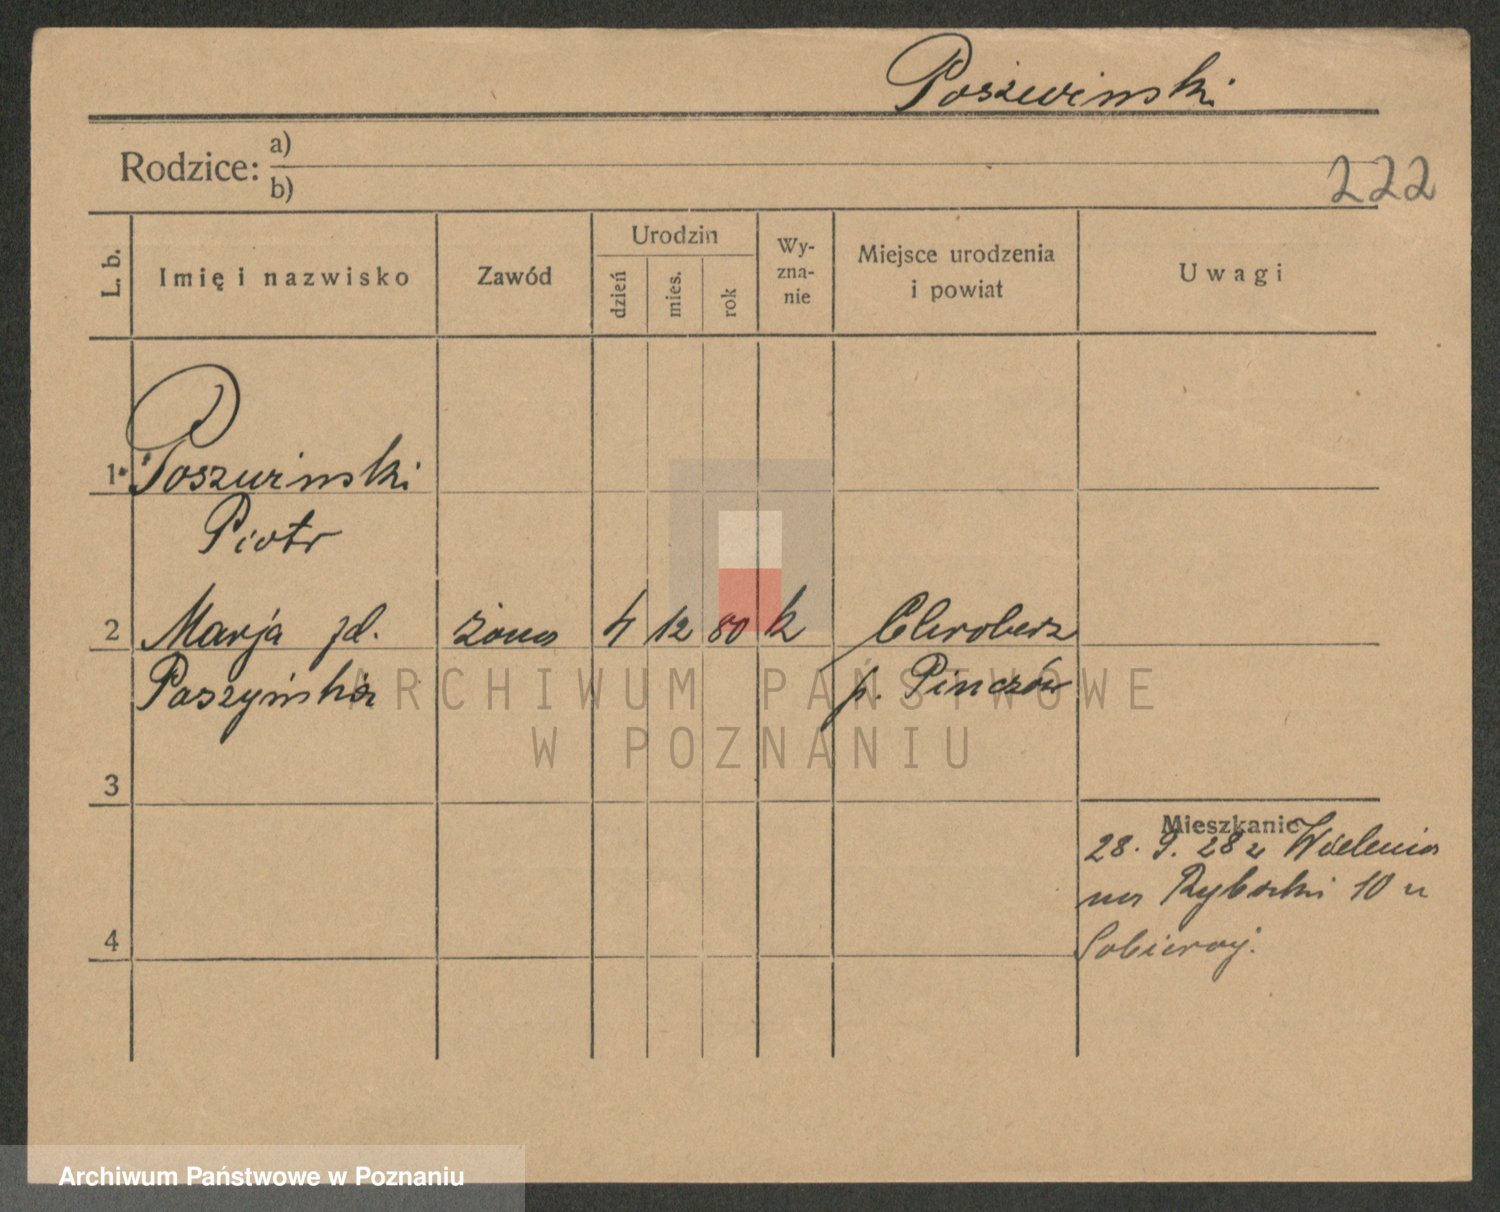 Poszwinski
Rodzice: a)
b)
222
L. b.
Imię i nazwisko
Zawód
Urodzin
dzień
mies.
rok
Wy-
zna-
nie
Miejsce urodzenia
i powiat
Uwagi
1. Poszwinski
Piotr
2 Marja zd. żona 4 12 80 k Chroberz
Paszyńska p. Pinczów
3
Mieszkanie
28. 9. 28 z Wielenia
na Rybaki 10 u
4
Sobieraj.
ARCHIWUM PAŃSTWOWE
W POZNANIU
Archiwum Państwowe w Poznaniu